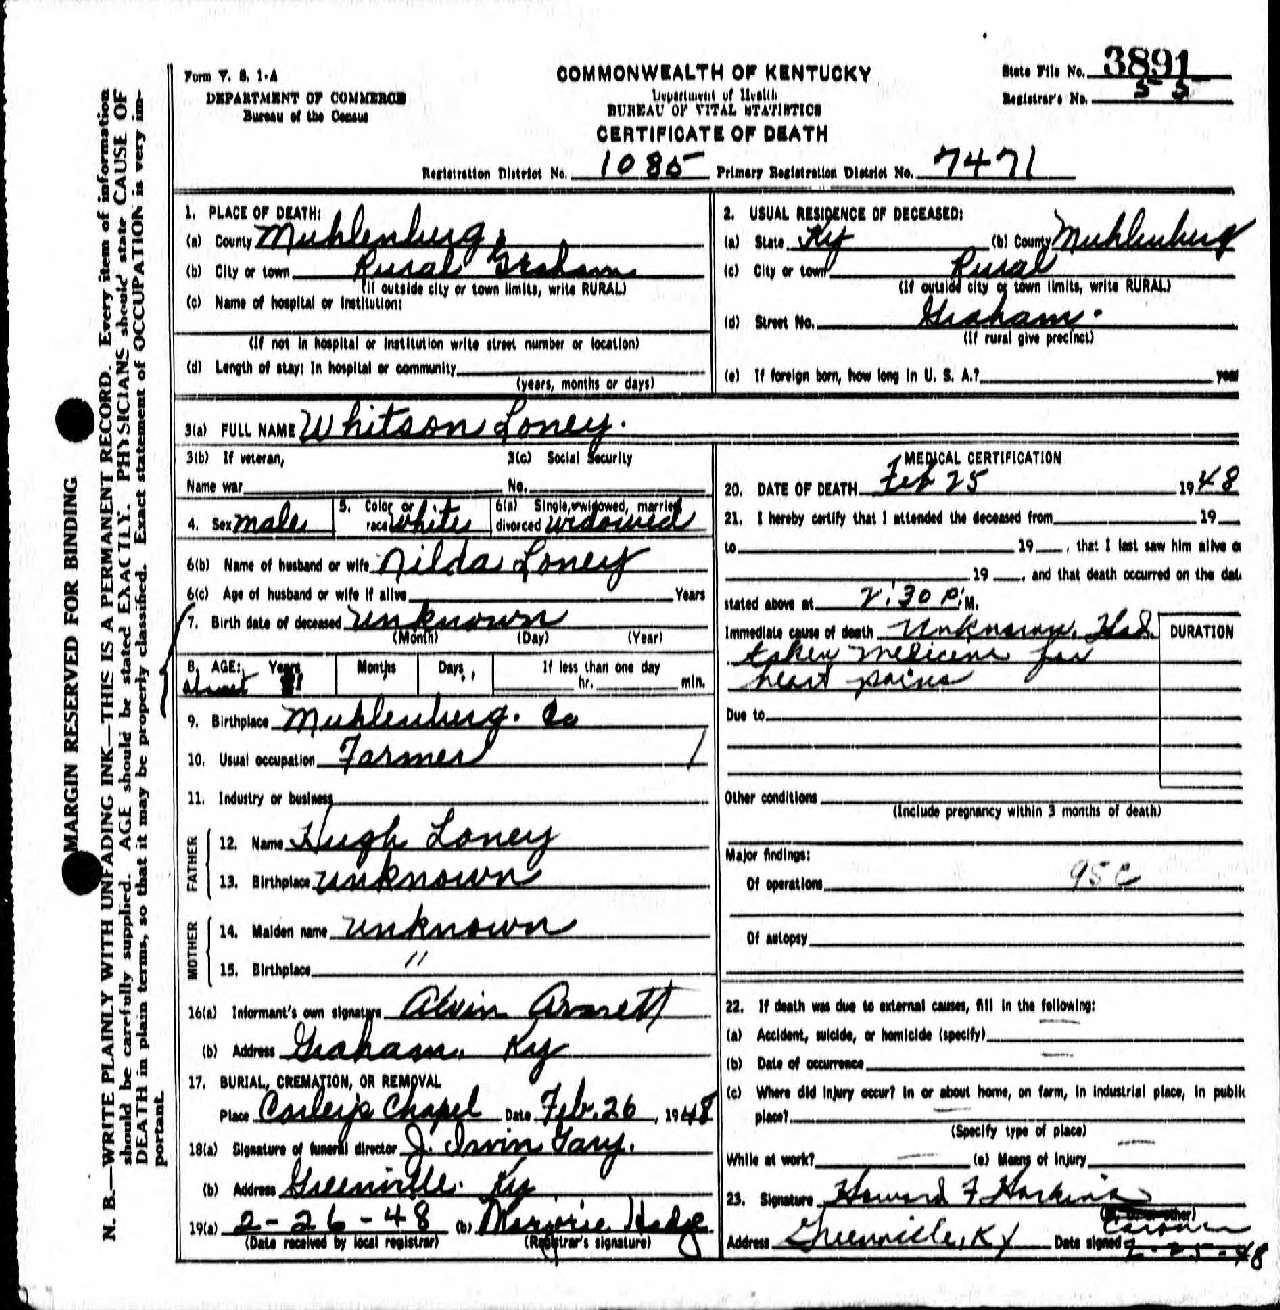 Form V. S. 1-A
DEPARTMENT OF COMMERCE
Bureau of the Census
COMMONWEALTH OF KENTUCKY
Department of Health
BUREAU OF VITAL STATISTICS
CERTIFICATE OF DEATH
State File No. 3891
Registrar's No. 55
Registration District No. 1085 Primary Registration District No. 7471
MARGIN RESERVED FOR BINDING
N. B.—WRITE PLAINLY WITH UNFADING INK—THIS IS A PERMANENT RECORD. Every item of information
should be carefully supplied. AGE should be stated EXACTLY. PHYSICIANS should state CAUSE OF
DEATH in plain terms, so that it may be properly classified. Exact statement of OCCUPATION is very im-
portant.
1. PLACE OF DEATH:
(a) County Muhlenberg.
(b) City or town Rural Graham
(If outside city or town limits, write RURAL)
(c) Name of hospital or institution:
(If not in hospital or institution write street number or location)
(d) Length of stay: In hospital or community
(years, months or days)
2. USUAL RESIDENCE OF DECEASED:
(a) State Ky (b) County Muhlenberg
(c) City or town Rural
(If outside city or town limits, write RURAL)
(d) Street No. Graham.
(If rural give precinct)
(e) If foreign born, how long in U. S. A.? year
3(a) FULL NAME Whitson Loney.
3(b) If veteran, 3(c) Social Security
Name war No.
4. Sex male 5. Color or race white 6(a) Single, widowed, married, divorced widowed
6(b) Name of husband or wife Nilda Loney
6(c) Age of husband or wife if alive Years
7. Birth date of deceased unknown
(Month) (Day) (Year)
8. AGE: Years Months Days If less than one day
hr. min.
9. Birthplace Muhlenberg. Co
10. Usual occupation Farmer
11. Industry or business
FATHER
12. Name Hugh Loney
13. Birthplace unknown
MOTHER
14. Maiden name unknown
15. Birthplace "
16(a) Informant's own signature Alvin Arnett
(b) Address Graham, Ky
17. BURIAL, CREMATION, OR REMOVAL
Place Corley's Chapel Date Feb. 26, 1948
18(a) Signature of funeral director J. Irvin Gary.
(b) Address Greenville. Ky
19(a) 2-26-48 (b) Marjorie Hodge
(Date received by local registrar) (Registrar's signature)
MEDICAL CERTIFICATION
20. DATE OF DEATH Feb 25 1948
21. I hereby certify that I attended the deceased from 19
to 19 , that I last saw him alive o
19 , and that death occurred on the dat
stated above at 2:30 P. M.
Immediate cause of death Unknown. Had DURATION
taken medicine for
heart pains
Due to
Other conditions
(Include pregnancy within 3 months of death)
Major findings:
Of operations 95c
Of autopsy
22. If death was due to external causes, fill in the following:
(a) Accident, suicide, or homicide (specify)
(b) Date of occurrence
(c) Where did injury occur? In or about home, on farm, in industrial place, in public
place?
(Specify type of place)
While at work? (e) Means of Injury
23. Signature Howard F Harkins
Coroner
Address Greenville, Ky Date signed 2-25-48